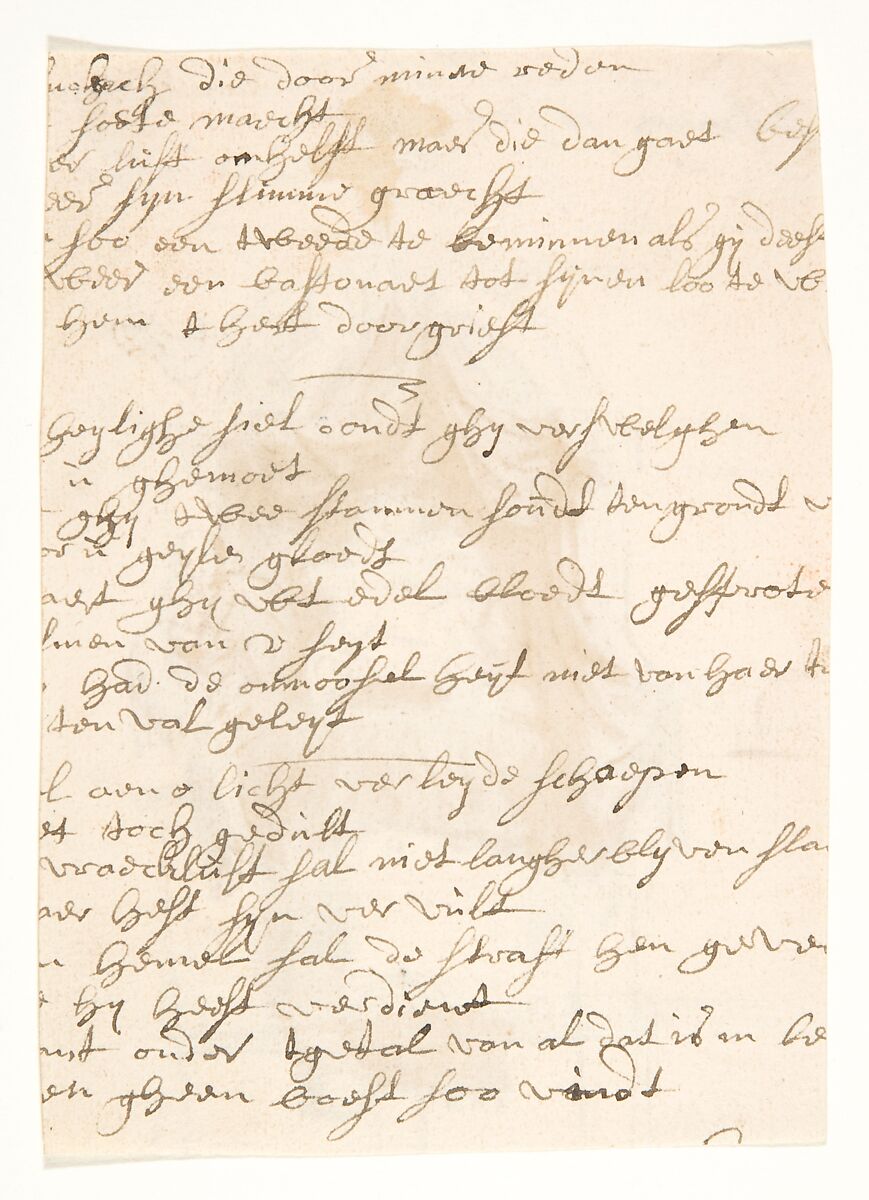 die door minne reden
soete macht
er lust omhelst maer die dan gaet bes
eer syn slimme gracht
soo een tweede te beminnen als gij deest
weer een bastonaet tot synen loo te wb
hem t hert doorgriest
heylighe siel condt ghy verswelghen
ù ghemoet
ghy twee stammen sondt ten grondt v
or ù geyle gloedt
aert ghy wt edel bloedt gesprote
men van v seyt
had de onnoosel heyt niet van haer tr
ten val geleyt
l aen o licht verleyde schaepen
et toch gedùlt
vraecklùst sal niet langher blyven sla
aer heft syn vervùlt
n hemel sal de straff hen geven
hy heeft verdient
mt onder tgetal van al dat is in be
en gheen boest soo vindt